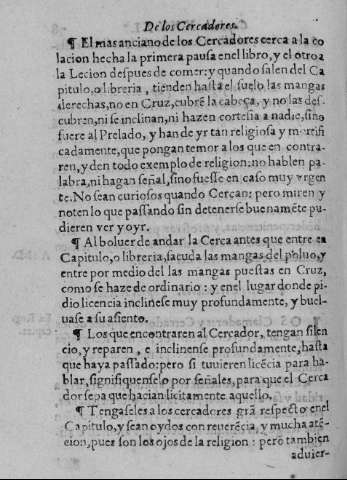 De los Cercadores.
¶ El mas anciano de los Cercadores cerca a la co
lacion hecha la primera pausa enel libro, y el otro a
la Lecion despues de comer: y quando salen del Ca
pitulo, o libreria, tienden hasta el suelo las mangas
derechas, no en Cruz, cubrẽ la cabeça, y no las des
cubren, ni se inclinan, ni hazen cortesia a nadie, sino
fuere al Prelado, y han de yr tan religiosa y mortifi
cadamente, que pongan temor a los que en contra-
ren, y den todo exemplo de religion: no hablen pa-
labra, ni hagan señal, sino fuesse en caso muy vrgen
te. No sean curiosos quando Cercan: pero miren y
noten lo que passando sin detenerse buenamẽte pu-
dieren ver y oyr.
¶ Al boluer de andar la Cerca antes que entre en
Capitulo, o libreria, sacuda las mangas del poluo, y
entre por medio del las mangas puestas en Cruz,
como se haze de ordinario: y enel lugar donde pi-
dio licencia inclinese muy profundamente, y buel-
uase a su asiento.
¶ Los que encontraren al Cercador, tengan silen
cio, y reparen, e inclinense profundamente, hasta
que haya passado: pero si tuuieren licẽcia para ha-
blar, signifiquenselo por señales, para que el Cerca
dor sepa que hazian licitamente aquello.
¶ Tengaseles a los cercadores grã respecto enel
Capitulo, y sean oydos con reuerẽcia, y mucha atẽ-
cion, pues son los ojos de la religion: però tambien
aduier-